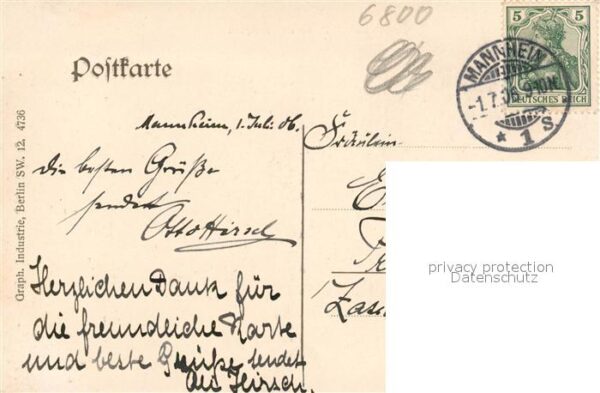 6800
5 5
DEUTSCHES REICH
MANNHEIM
-1.7.06. 9-10N.
* 1 S
Postkarte
Mannheim, 1. Juli. 06.
die besten Grüße
sendet
Otto Hirsch
Herzlichen Dank für
die freundliche Karte
und beste Grüße sendet
Hirsch.
Fräulein
Graph. Industrie, Berlin SW. 12. 4736
privacy protection
Datenschutz